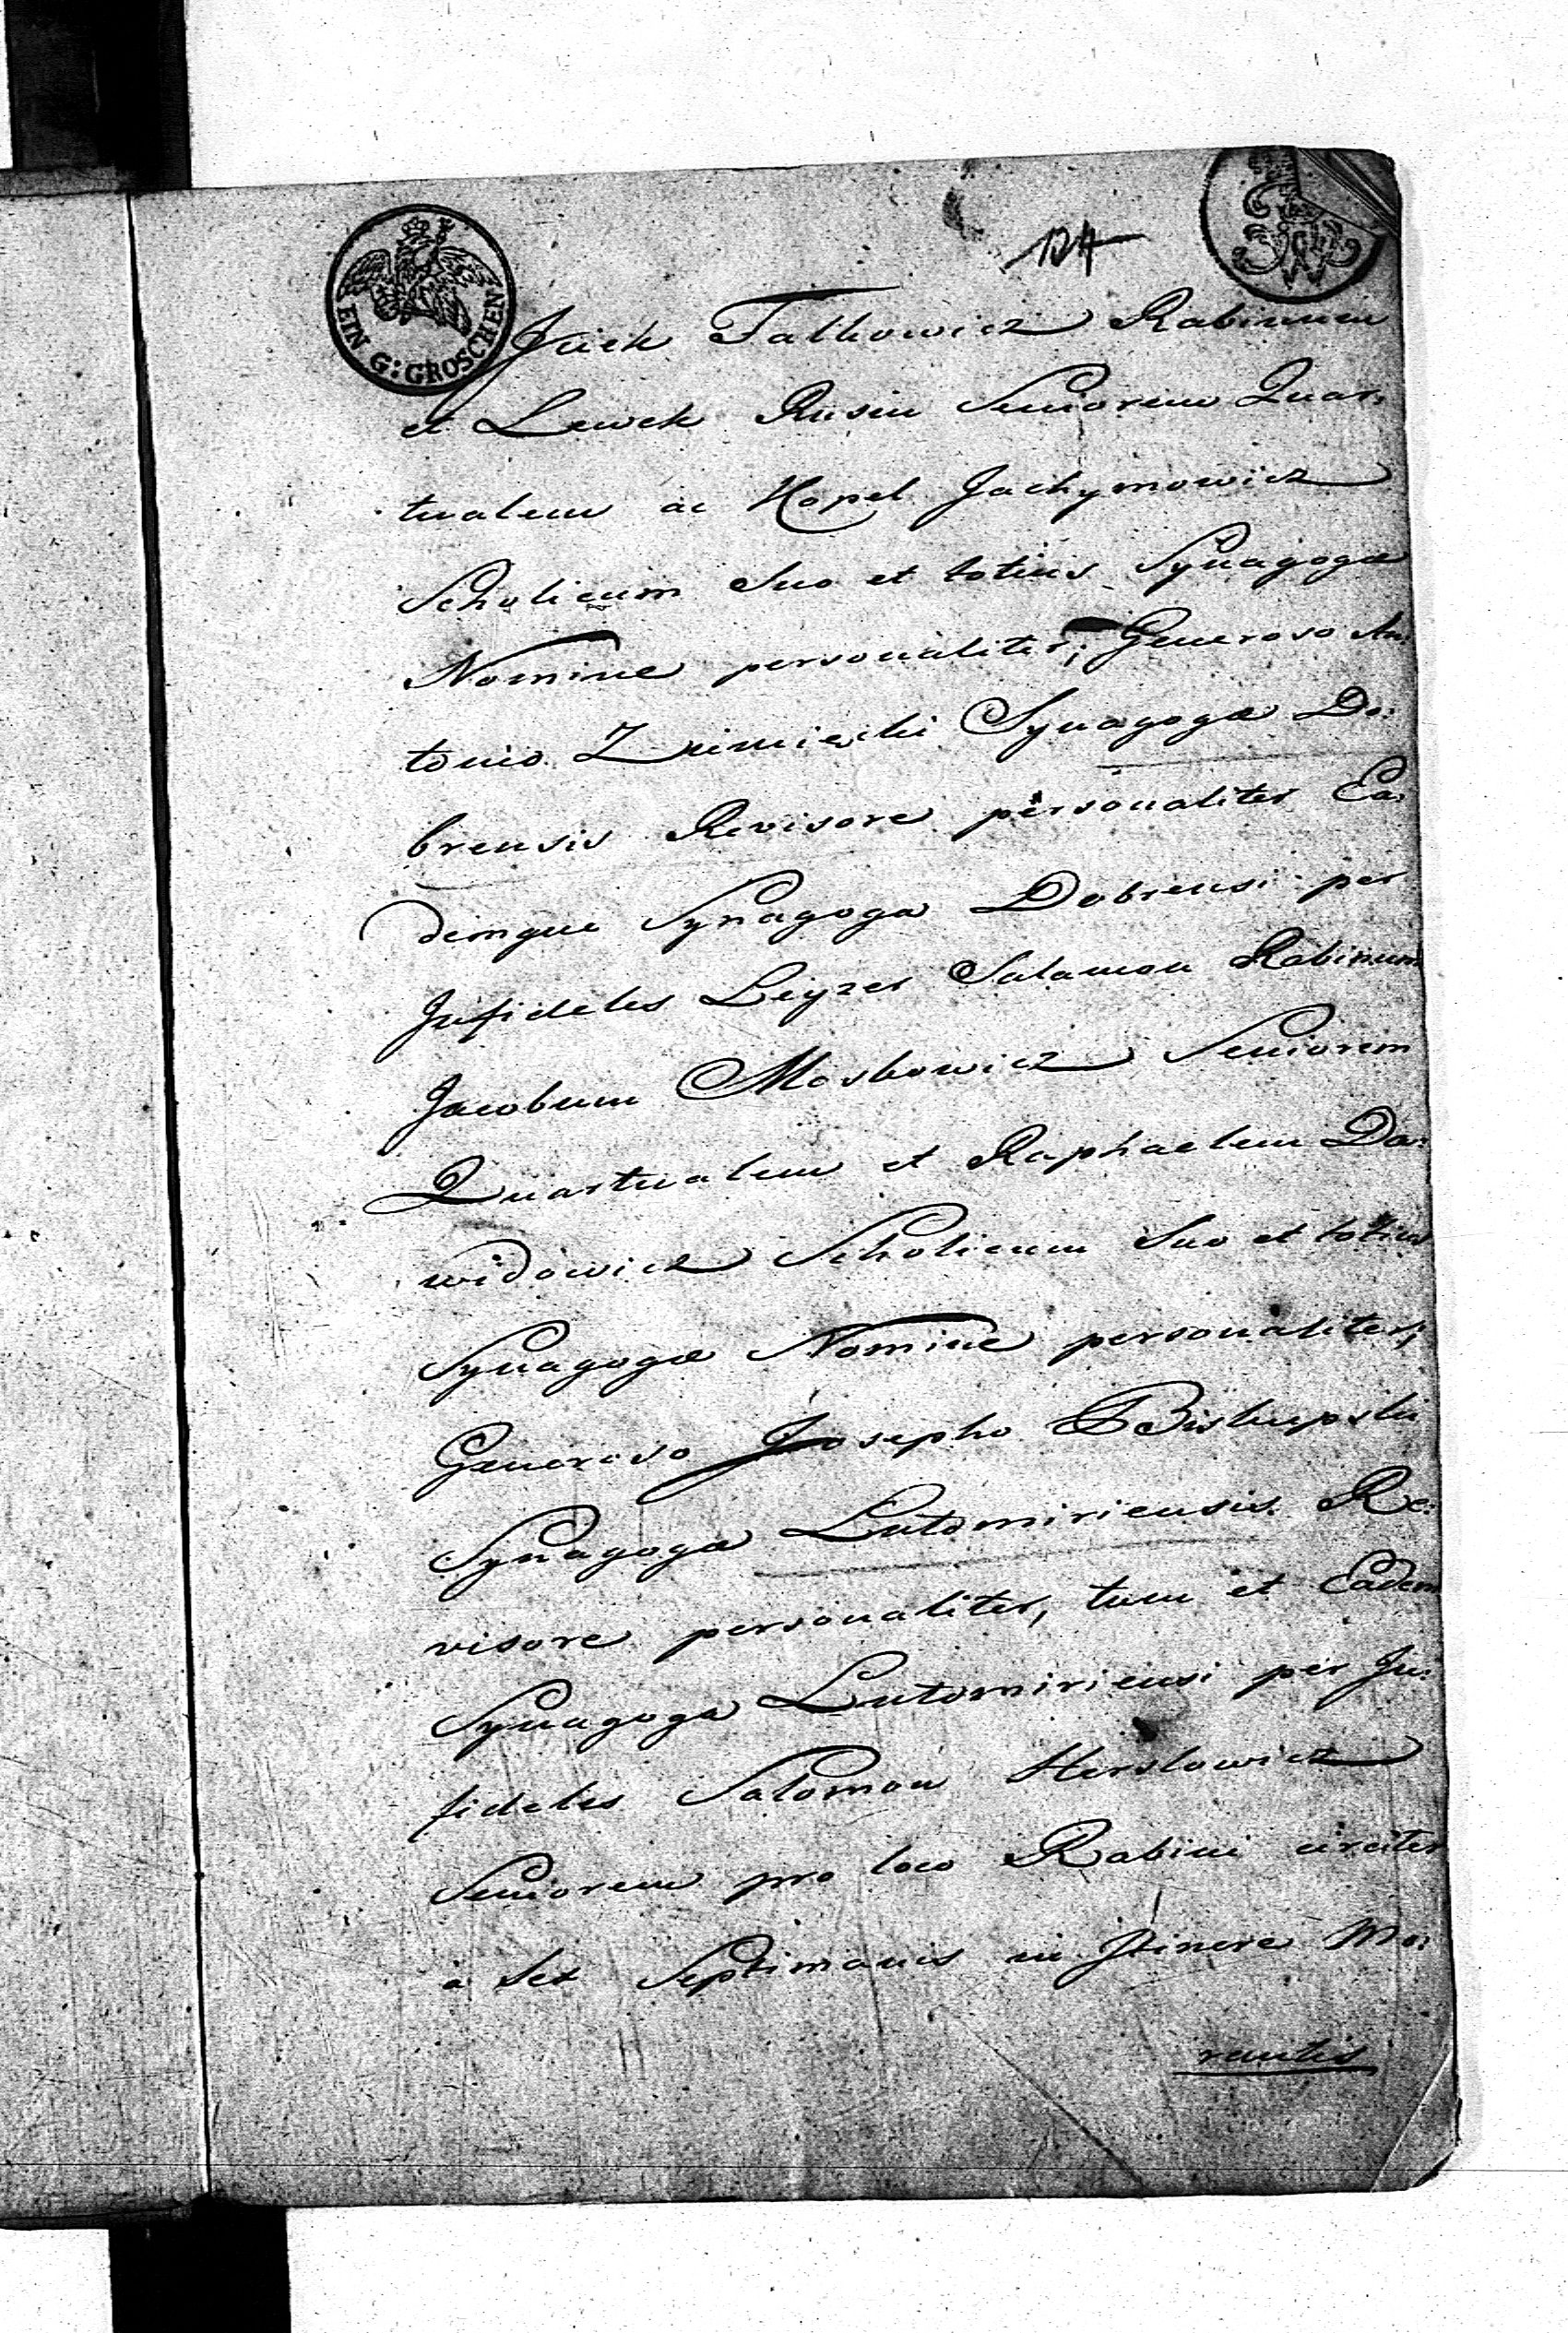 EIN G: GROSCHEN
124
Jcick Falkowicz Rabinum
et Lewek Rusin Seniorem Quar:
tualem ac Kopel Jachymowicz
Scholicum Suo et totius Synagogæ
Nomine personaliter; Generoso An:
tonio Znimięcki Synagogæ Do:
brensis Revisore personaliter Ea:
demque Synagoga Dobrensi per
Infideles Leyzer Salamon Rabinum
Jacobum Moskowicz Seniorem
Quartualem et Raphaelem Da:
widowicz Scholicum Suo et totius
Synagogæ Nomine personaliter;
Generoso Josepho Biskupski
Synagogæ Lutomiriensis Re:
visore personaliter, tum et Eadem
Synagoga Lutomiriensi per In:
fideles Salomon Herslowicz
Seniorem pro loco Rabini circiter
a Sex Septimanis in Itinere Mo:
rantis